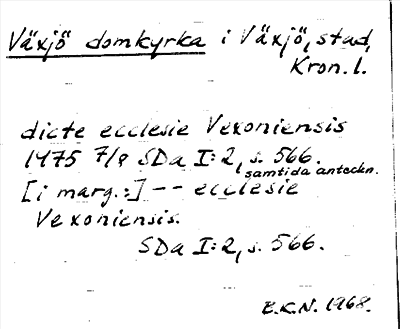 Växjö domkyrka i Växjö, stad,
Kron. l.
dicte ecclesie Vexoniensis
1475 7/9 SDa I:2, s. 566.
samtida anteckn.
[i marg.:] -- ecclesie
Vexoniensis.
SDa I:2, s. 566.
E.K.N. 1968.